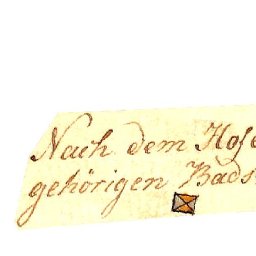 Nach dem Hofe
gehörigen Bads